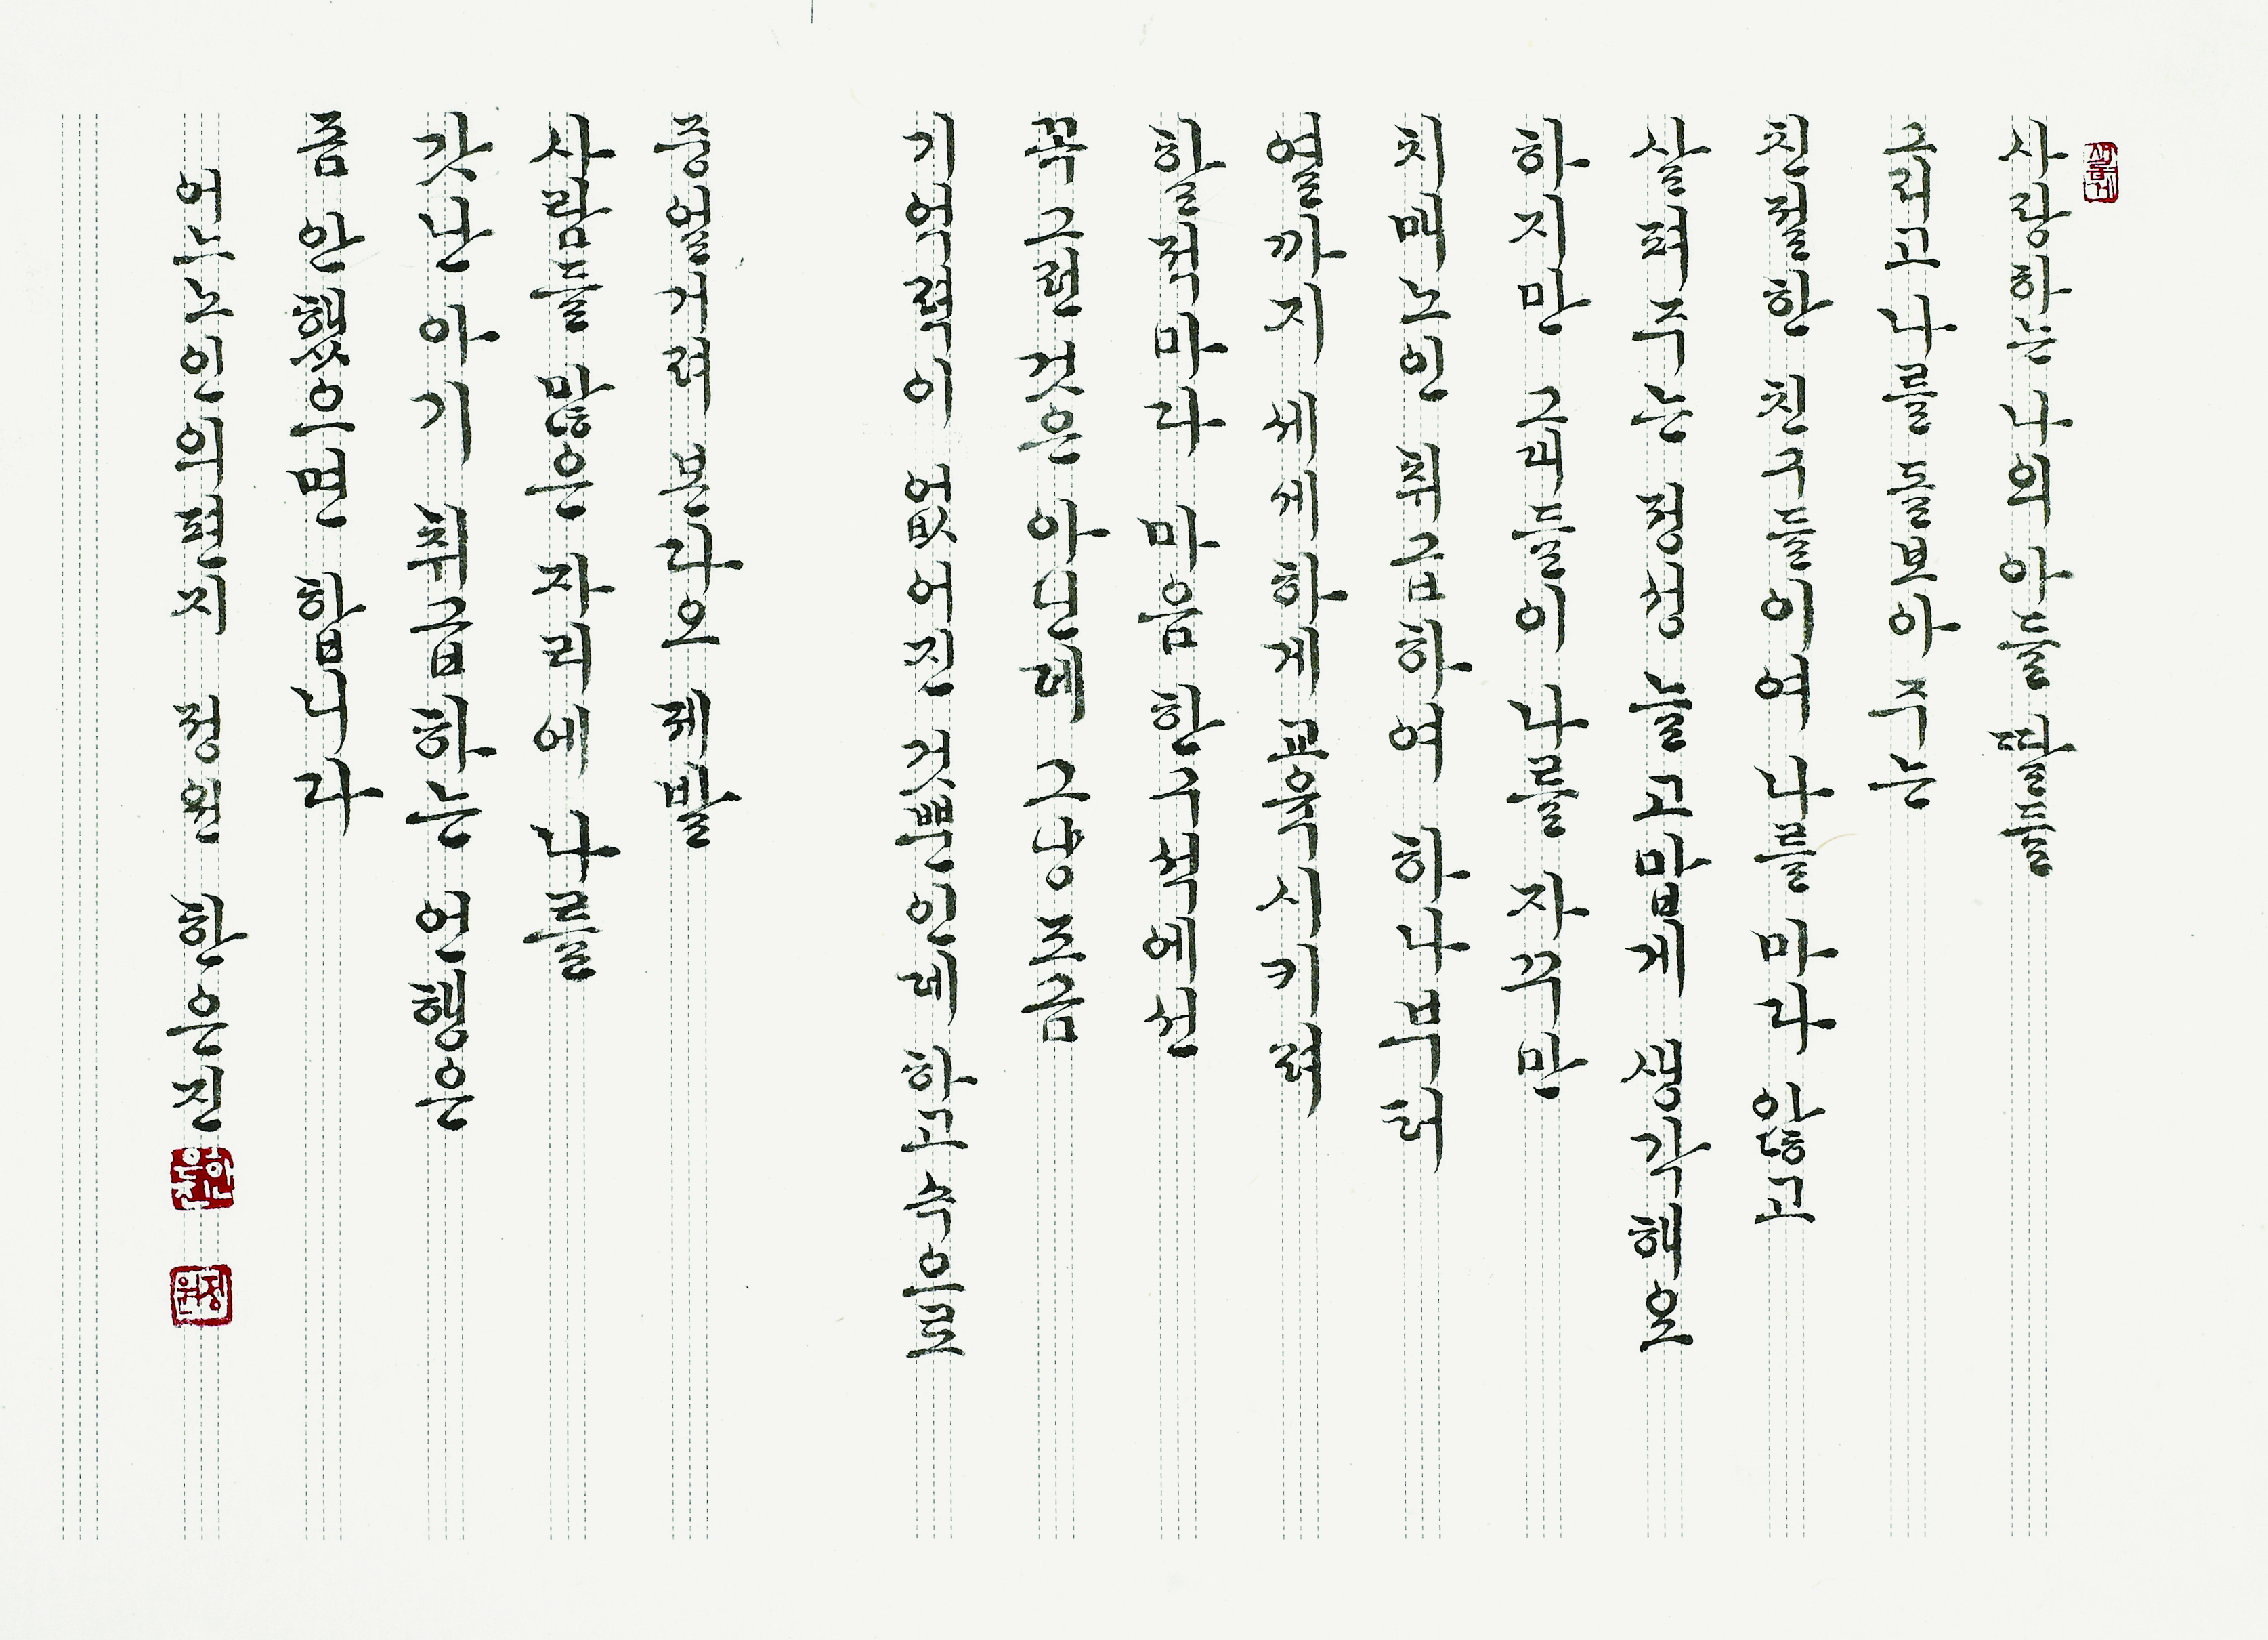 사랑하는 나의 아들 딸들
그리고 나를 돌보아 주는
친절한 친구들이여 나를 마라 않고
살펴주는 정성 늘 고맙게 생각해요
하지만 그괴들이 나를 자꾸만
치매노인 취급하여 하나부터
열까지 세세하게 교육시키려
할적마다 마음 한구석에선
꼭 그런 것은 아닌데 그냥 조금
기억력이 없어진 것뿐인데 하고 속으로
중얼거려 본다오 제발
사람들 많은 자리에 나를
갓난아기 취급하는 언행은
좀 안했으면 합니다
어느노인의편지 정원 한은진
한은진
정원